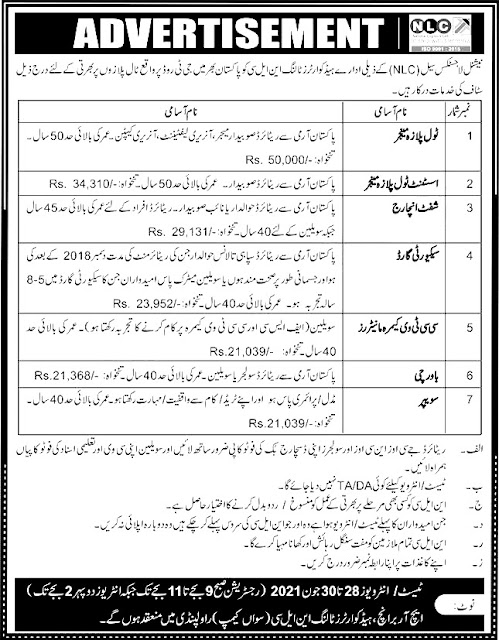 ADVERTISEMENT
NLC
ISO 9001 : 2015
نیشنل لاجسٹکس سیل (NLC) کے ذیلی ادارے ہیڈ کوارٹرز ٹالنگ این ایل سی کو پاکستان بھر میں جی ٹی روڈ پر واقع ٹال پلازوں پر بھرتی کے لئے درج ذیل
سٹاف کی خدمات درکار ہیں۔
نمبر شمار نام آسامی نام آسامی
1 ٹول پلازہ منیجر پاکستان آرمی سے ریٹائرڈ صوبیدار میجر، آنریری لیفٹیننٹ، آنریری کیپٹن۔ عمر کی بالائی حد 50 سال۔
تنخواہ: -/Rs. 50,000
2 اسسٹنٹ ٹول پلازہ منیجر پاکستان آرمی سے ریٹائرڈ صوبیدار۔ عمر کی بالائی حد 50 سال۔ تنخواہ: -/Rs. 34,310
3 شفٹ انچارج پاکستان آرمی سے ریٹائرڈ حوالدار یا نائب صوبیدار۔ ریٹائرڈ افراد کے لئے عمر کی بالائی حد 45 سال
جبکہ سویلین کے لئے 40 سال۔ تنخواہ: -/Rs. 29,131
4 سیکیورٹی گارڈ پاکستان آرمی سے ریٹائرڈ سپاہی تا لانس حوالدار جن کی ریٹائرمنٹ کی مدت دسمبر 2018 کے بعد کی
ہو اور جسمانی طور پر صحت مند ہوں یا سویلین میٹرک پاس امیدواران جن کا سیکیورٹی گارڈ میں 5-8
سالہ تجربہ ہو۔ عمر کی بالائی حد 40 سال۔ تنخواہ: -/Rs. 23,952
5 سی سی ٹی وی کیمرہ مانیٹرز سویلین (ایف ایس سی اور سی سی ٹی وی کیمرہ پر کام کرنے کا تجربہ رکھتا ہو)۔ عمر کی بالائی حد
40 سال۔ تنخواہ: -/Rs.21,039
6 باورچی پاکستان آرمی سے ریٹائرڈ سولجر یا سویلین۔ عمر کی بالائی حد 40 سال۔ تنخواہ: -/Rs.21,368
7 سویپر مڈل/پرائمری پاس ہو اور اپنے ٹریڈ/کام سے واقفیت/مہارت رکھتا ہو۔ عمر کی بالائی حد 40 سال۔
تنخواہ: -/Rs.21,039
الف۔ ریٹائرڈ جے سی اوز این سی اوز اور سولجرز اپنی ڈسچارج بک کی فوٹو کاپی ضرور ساتھ لائیں اور سویلین اپنی سی وی اور تعلیمی اسناد کی فوٹو کاپیاں
ہمراہ لائیں۔
ب۔ ٹیسٹ/انٹرویو کیلئے کوئی TA/DA نہیں دیا جائے گا۔
ج۔ این ایل سی کو کسی بھی مرحلے پر بھرتی کے عمل کو منسوخ/ردوبدل کرنے کا اختیار حاصل ہے۔
د۔ جن امیدواران کا پہلے ٹیسٹ/انٹرویو ہوا ہے وہ اور جو این ایل سی کی سروس پہلے کر چکے ہیں وہ دوبارہ اپلائی نہ کریں۔
ر۔ این ایل سی تمام ملازمین کو مفت سنگل رہائش اور کھانا مہیا کرے گا۔
ز۔ اپنے کاغذات پر اپنا رابطہ نمبر ضرور درج کریں۔
نوٹ: ٹیسٹ/انٹرویوز 28 تا 30 جون 2021 (رجسٹریشن صبح 9 بجے تا 11 بجے تک جبکہ انٹرویوز دوپہر 2 بجے تک)
ایچ آر برانچ، ہیڈ کوارٹرز ٹالنگ این ایل سی (سواں کیمپ) راولپنڈی میں منعقد ہوں گے۔